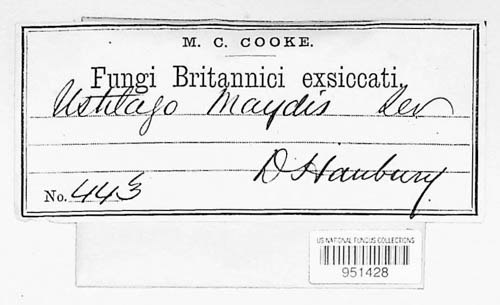 M. C. COOKE.
Fungi Britannici exsiccati,
Ustilago Maydis Lev
D Hanbury.
No. 443
US NATIONAL FUNGUS COLLECTIONS
951428